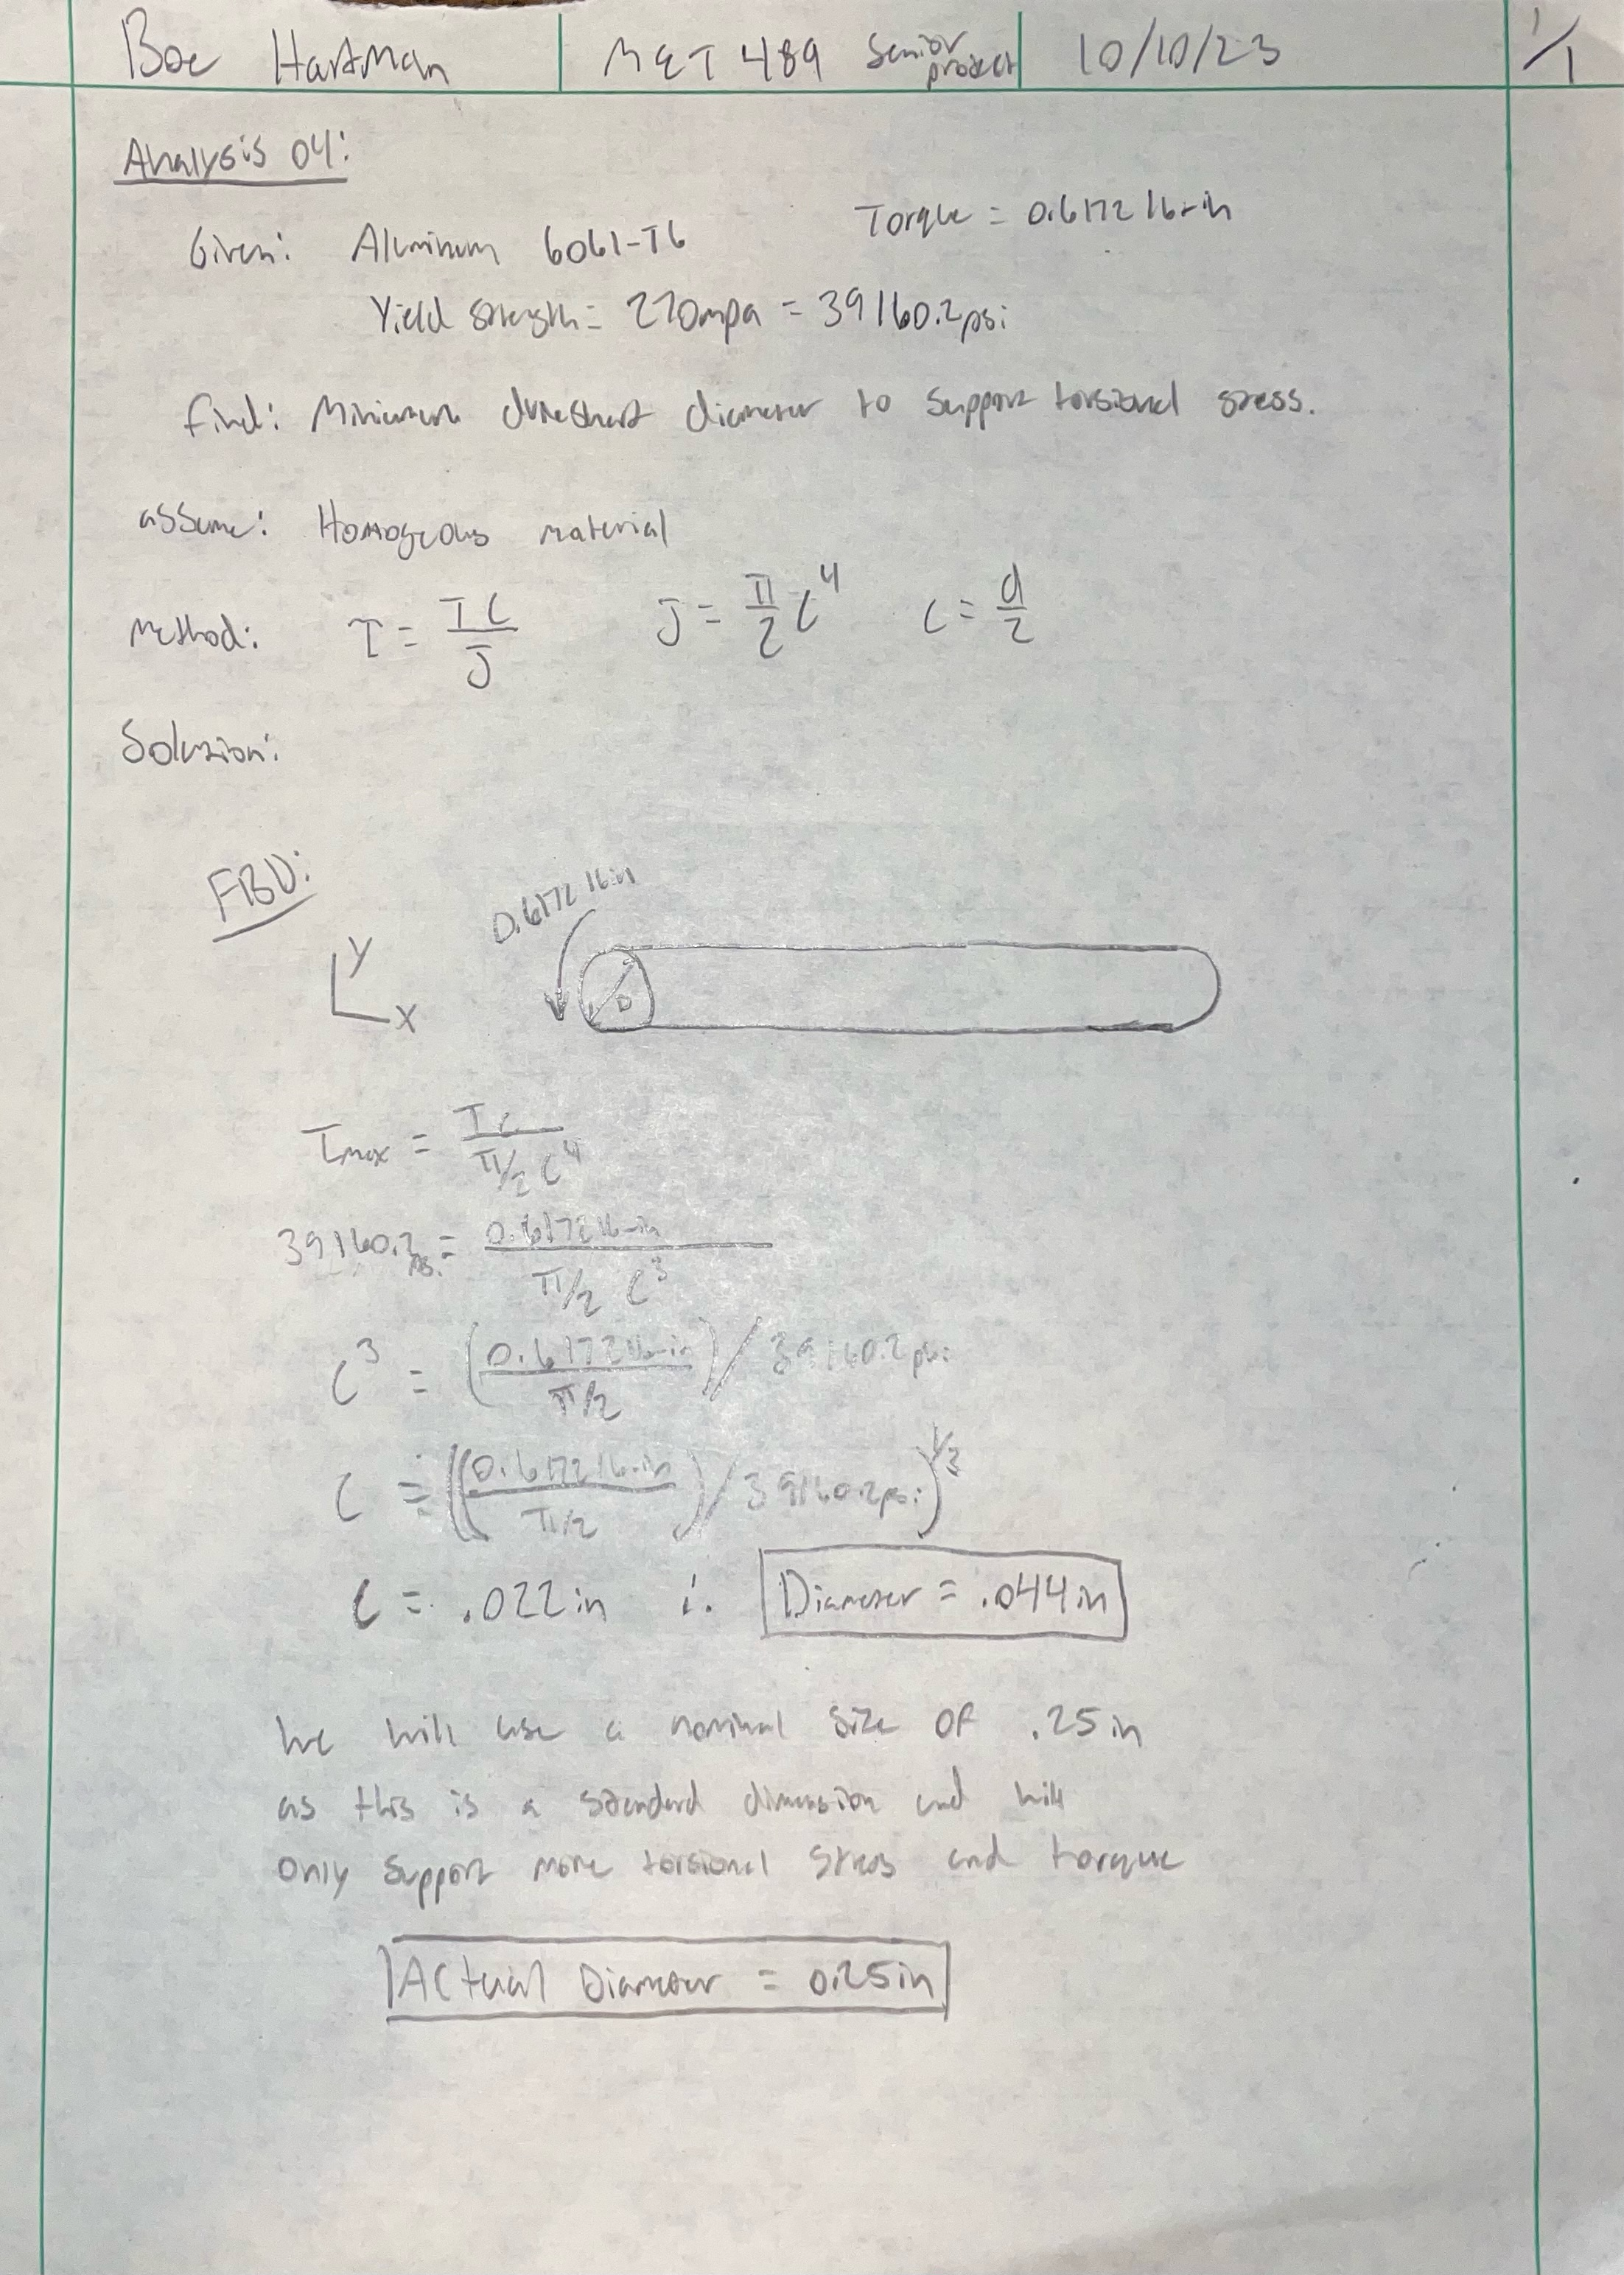 Boe Hartman MET 489 Senior project 10/10/23 1/1
Analysis 04:
Given: Aluminum 6061-T6 Torque = 0.6172 lb-in
Yield strength = 270mpa = 39160.2psi
Find: Minimum driveshaft diameter to support torsional stress.
assume: Homogeous material
Method: τ = TC/J J = π/2 C⁴ C = d/2
Solution:
FBD:
0.6172 lb-in
Y
X
D
τmax = TC / (π/2 C⁴)
39160.2psi = 0.6172 lb-in / (π/2 C³)
C³ = (0.6172 lb-in / (π/2)) / 39160.2psi
C = ((0.6172 lb-in / (π/2)) / 39160.2psi)^1/3
C = .022in ∴ Diameter = .044in
We will use a nominal size of .25in
as this is a standard dimension and will
only support more torsional stress and torque
Actual Diameter = 0.25in